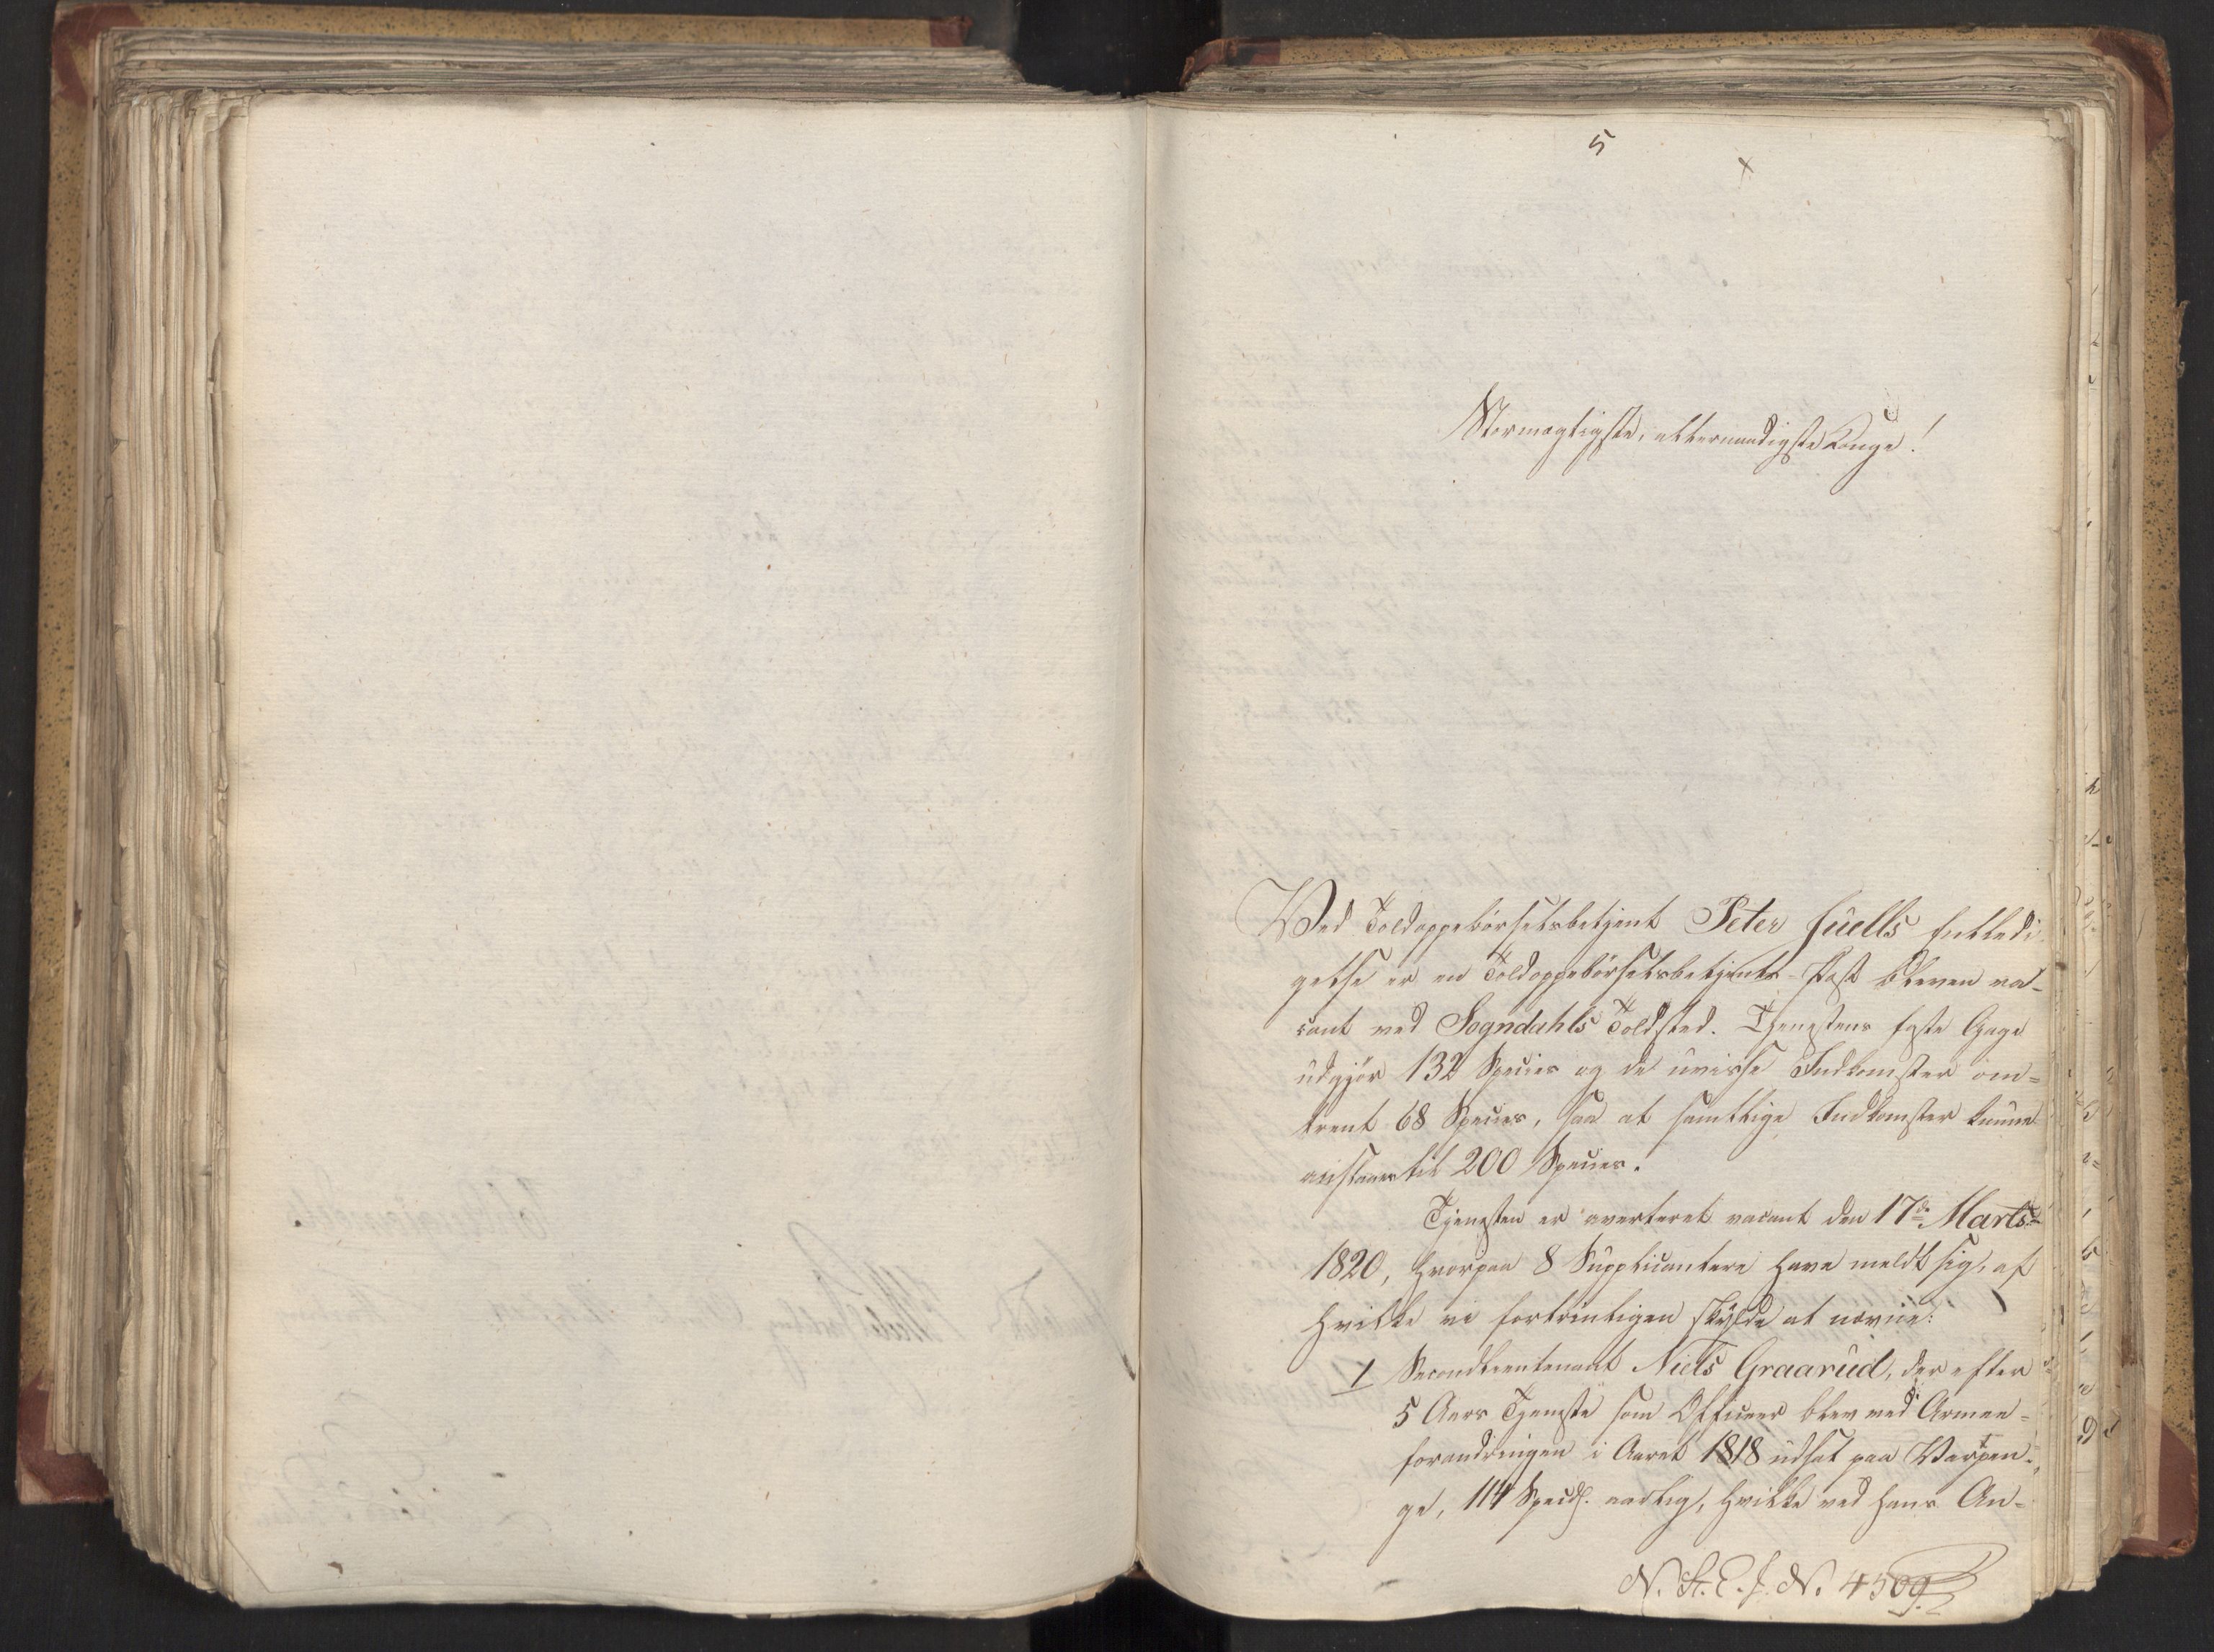 5
Stormægtigste, allernaadigste Konge!
Ved Toldoppebørselsbetjent Peter Juells Entledi-
gelse er en Toldoppebørselsbetjents-Post bleven va-
cant ved Sogndahls Toldsted. Tjenestens faste Gage
udgjør 132 Species og de uvisse Indkomster om-
trent 68 Species, saa at samtlige Indkomster kunne
anslaaes til 200 Species.
Tjenesten er averteret vacant den 17de Marts
1820, hvorpaa 8 Supplicantere have meldt sig, af
hvilke vi fortrinligen skylde at nævne:
1 Secondlieutenant Niels Graarud, der efter
5 Aars Tjeneste som Officeer blev ved Armee-
forandringen i Aaret 1818 udsat paa Vartpen-
ge, 114 Specdlr. aarlig, hvilke ved hans An-
N. St. E. J. N. 4509